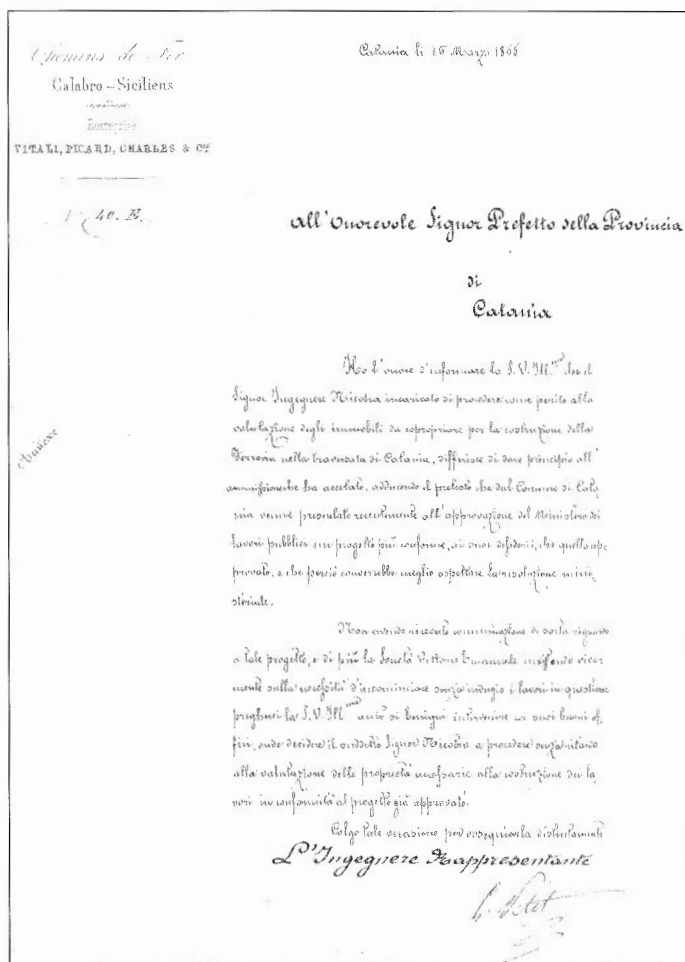 Chemins de Fer
Calabro-Siciliens
Entreprise
VITALI, PICARD, CHARLES & Cie
Catania li 16 Marzo 1866
N° 40. E.
All'Onorevole Signor Prefetto della Provincia
di
Catania
Annexe
Ho l'onore d'informare la S.V. Ill.ma che il
Signor Ingegnere Nicotra incaricato di procedere come perito alla
valutazione degli immobili da espropriare per la costruzione della
Ferrovia nella traversata di Catania, differisce di dare principio all'
ammissione che ha accettato, adducendo il pretesto che dal Comune di Cata
nia venne presentato recentemente all'approvazione del Ministero dei
lavori pubblici un progetto più conforme, ai suoi desiderii, che quello ap
provato, e che perciò converrebbe meglio aspettare la risoluzione mini
steriale.
Non avendo ricevuto comunicazione di sorta riguardo
a tale progetto, e di più la Società Vittorio Emanuele insistendo viva
mente sulla necessità d'incominciare senza indugio i lavori in questione
pregherei la S.V. Ill.ma acciò si benigni intervenire coi suoi buoni of
fici, onde decidere il suddetto Signor Nicotra a procedere senza ritardo
alla valutazione delle proprietà necessarie alla costruzione dei la
vori in conformità al progetto già approvato.
Colgo tale occasione per ossequiarla distintamente
L'Ingegnere Rappresentante